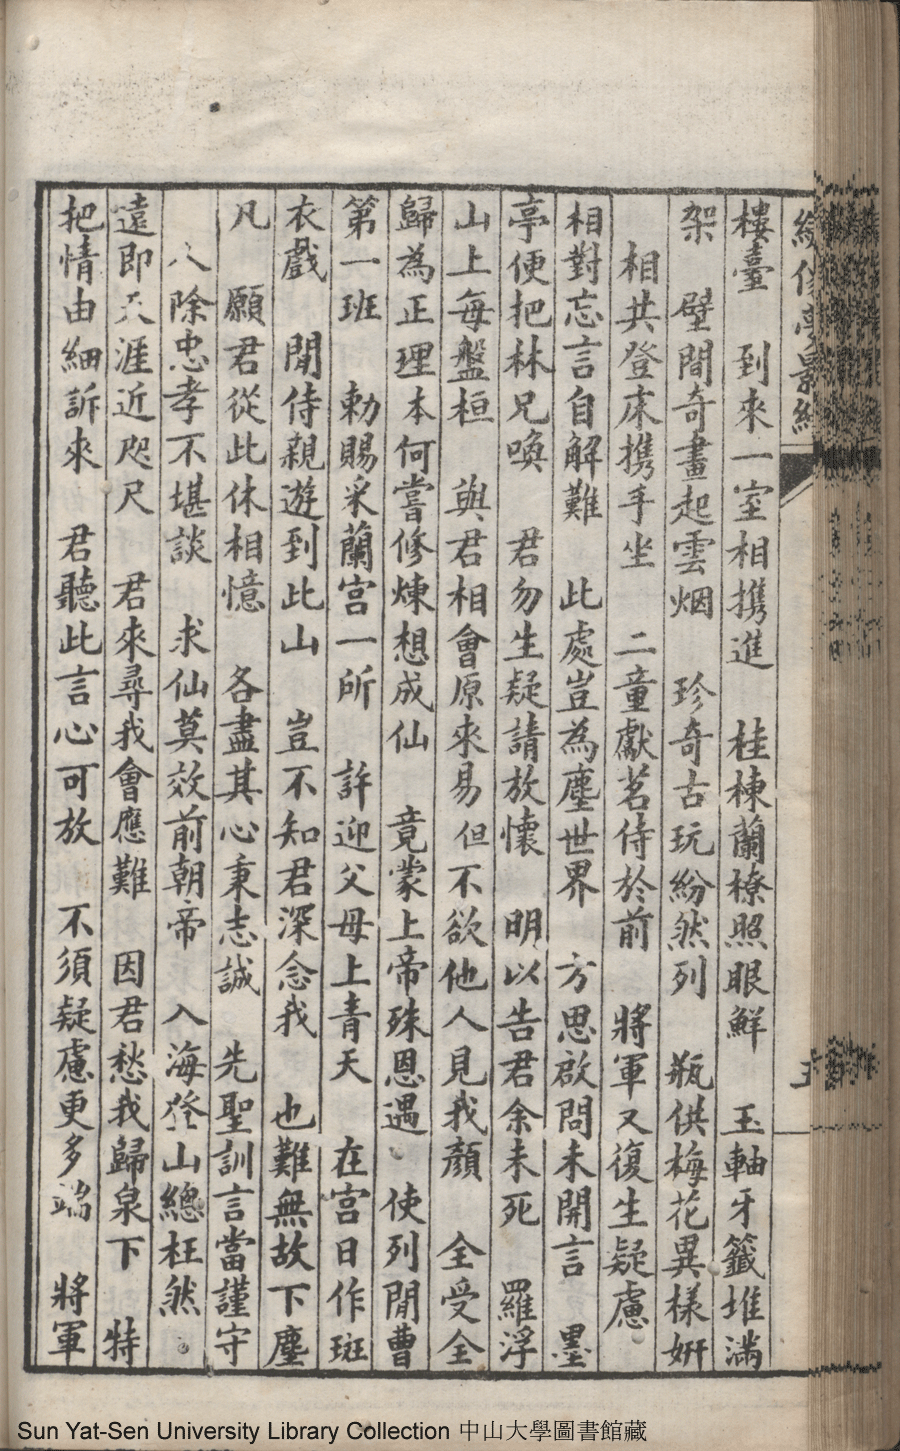 樓臺　到來一室相攜進　桂棟蘭橑照眼鮮　玉軸牙籤堆滿
架　壁間奇畫起雲烟　珍奇古玩紛然列　瓶供梅花異樣妍
相共登床携手坐　二童獻茗侍於前　將軍又復生疑慮
相對忘言自解難　此處豈為塵世界　方思啟問未開言　墨
亭便把林兄喚　君勿生疑請放懷　明以告君余未死　羅浮
山上每盤桓　與君相會原來易　但不欲他人見我顏　全受全
歸為正理　本何嘗修煉想成仙　竟蒙上帝殊恩遇　使列閒曹
第一班　勅賜采蘭宮一所　許迎父母上青天　在宮日作斑
衣戲　閒侍親遊到此山　豈不知君深念我　也難無故下塵
凡　願君從此休相憶　各盡其心秉志誠　先聖訓言當謹守
除忠孝不堪談　求仙莫效前朝帝　入海登山總枉然
遠即天涯近咫尺　君來尋我會應難　因君愁我歸泉下　特
把情由細訴來　君聽此言心可放　不須疑慮更多端　將軍
Sun Yat-Sen University Library Collection 中山大學圖書館藏